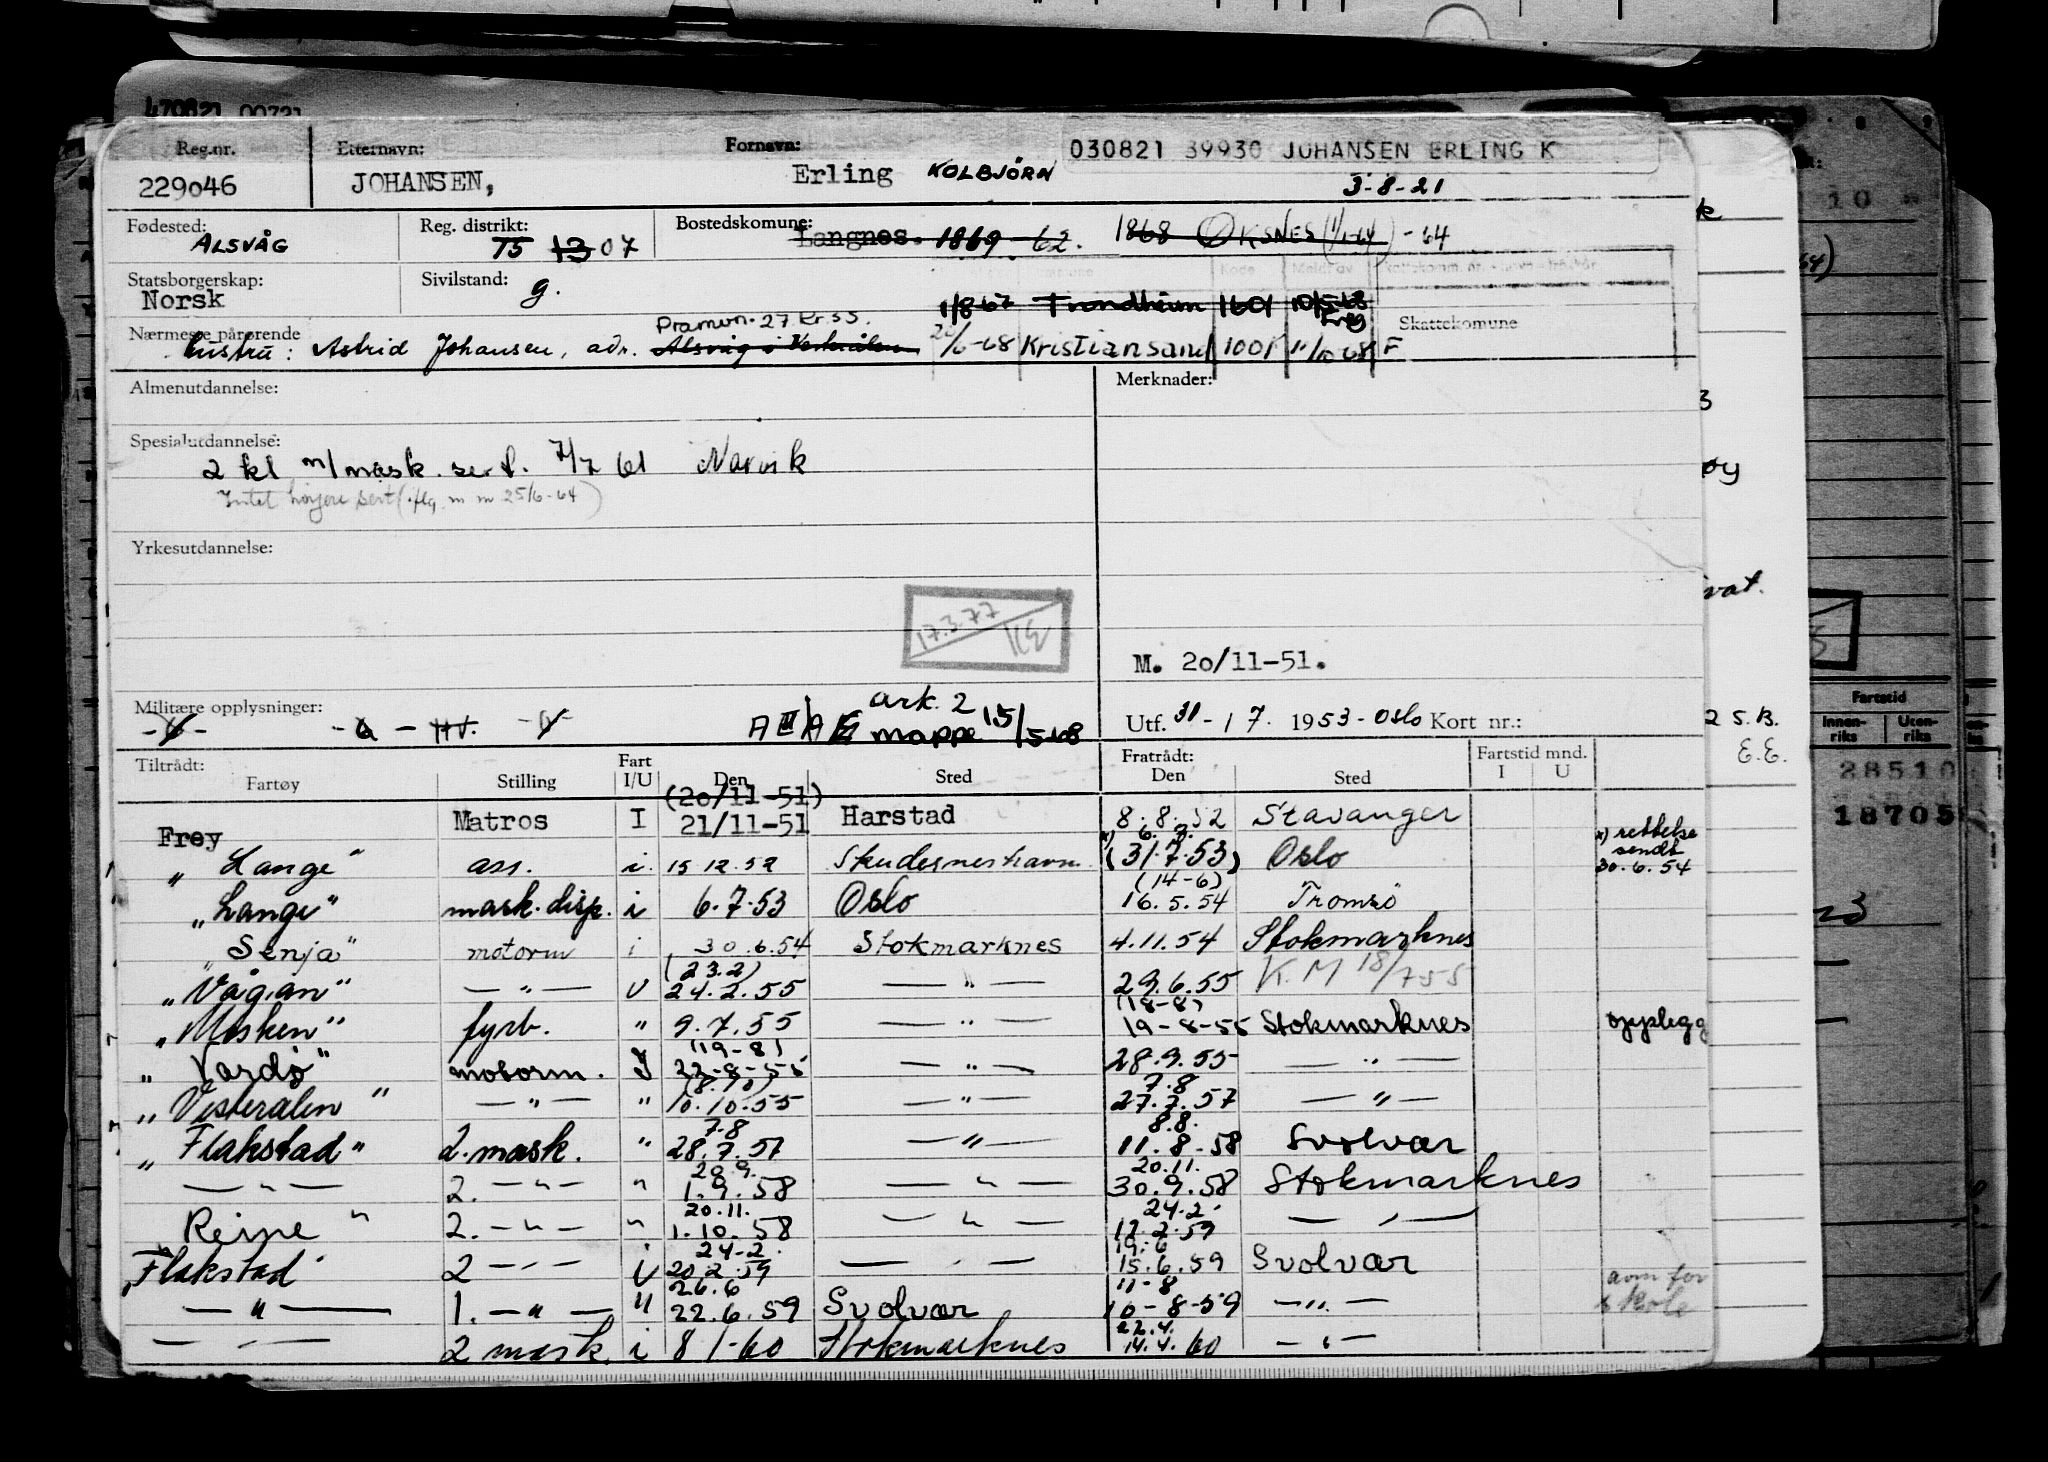 470821 00721
Reg.nr. Etternavn: Fornavn: 030821 39930 JOHANSEN ERLING K
229046 JOHANSEN, Erling KOLBJÖRN 3-8-21
Fødested: ALSVÅG Reg. distrikt: T5 13 07 Bostedskomune: Langnes. 1869 - 62. 1868 ØKSNES (1/1-64) - 64
Statsborgerskap: Norsk Sivilstand: g.
1/8-67 Trondheim 1601 10/5-68
Nærmeste pårørende Pramvn. 27 Kr.ss. Skattekomune
hustru: Astrid Johansen, adr. Alsvåg i Vesterålen 20/6-68 Kristiansand 1001 11/10 68 F
Almenutdannelse: Merknader:
Spesialutdannelse:
2 kl m/mask. sert. 7/7 61 Narvik
Intet höyere sert (iflg. m m 25/6-64)
Yrkesutdannelse:
17.3.77
M. 20/11-51.
Militære opplysninger: ark. 2
mappe 15/5-68 Utf. 31 - 7. 1953 - Oslo Kort nr.:
Tiltrådt: Fart Fratrådt: Fartstid mnd.
Fartøy Stilling I/U Den Sted Den Sted I U
(20/11-51)
Frey Matros I 21/11-51 Harstad 8.8.52 Stavanger
6. 7. x) rettelse sendt 30.6.54
"Lange" ass. i. 15 12.52 Skudesneshavn x) (31.7.53) Oslo
(14-6)
"Lange" mask. disp. i 6.7.53 Oslo 16.5.54 Tromsö
"Senja" motorm i 30.6.54 Stokmarknes 4.11.54 Stokmarknes
(23.2)
"Vågan" — " — U 24.2.55 — " — 29.6.55 K.M 18/7 55
(18-8)
"Misken" fyrb. " 9.7.55 — " — 19-8-55 Stokmarknes opplegg
(19-8)
"Vardö" motorm. I 22-8-55 — " — 28.9.55 — " —
(8.10) 7.8
"Vesterålen" — " — " 10.10.55 — " — 27.7.57 — " —
7.8 8.8.
"Flakstad" 2. mask. " 28.7.57 — " — 11.8.58 Svolvær
20.9. 20.11.
— " — 2. — " — " 1.9.58 — " — 30.9.58 Stokmarknes
20.11. 24.2
Reine " 2. — " — " 1.10.58 — " — 17.2.59 — " —
24-2. 19.6
"Flakstad" 2 — " — U 20.2.59 — " — 15.6.59 Svolvær
26.6 11-8 avm for skole
— " — 1. — " — " 22.6.59 Svolvær 10-8-59 — " —
22.4.
— " — 2 mask. i 8 1-60 Stokmarknes 14.4.60 — " —
Fartstid
Innen-riks Uten-riks
28510
18705
2 5.B.
E.E.